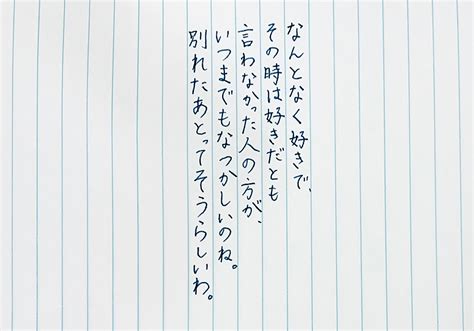 なんとなく好きで、
その時は好きだとも
言わなかった人の方が、
いつまでもなつかしいのね。
別れたあとってそうらしいわ。